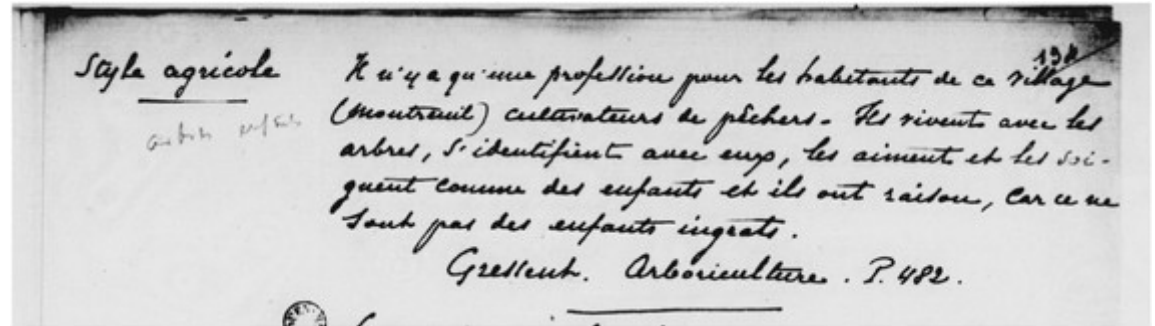 Style agricole
Il n'y a qu'une profession pour les habitants de ce village
(Montreuil) cultivateurs de pêchers. Ils vivent avec les
arbres, s'identifient avec eux, les aiment et les soi-
gnent comme des enfants et ils ont raison, car ce ne
sont pas des enfants ingrats.
Gressent. Arboriculture. P. 482.